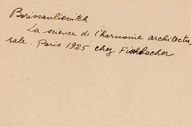 Borissavliévitch
La science de l'harmonie architectu
rale. Paris 1925 chez Fischbacher